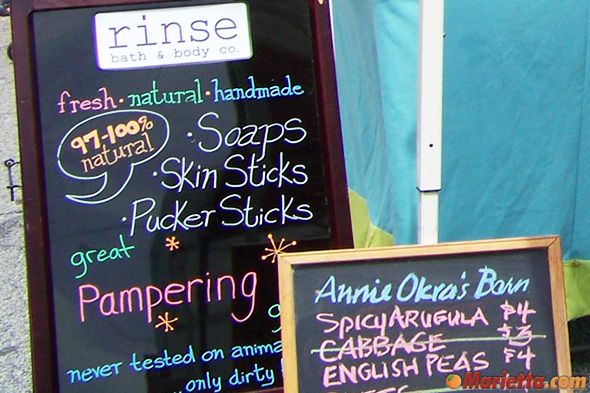 rinse
bath & body co.
fresh · natural · handmade
97-100%
natural
· Soaps
· Skin Sticks
· Pucker Sticks
great
Pampering
never tested on
... only dirty
Annie Okra's Barn
SPICY ARUGULA $4
CABBAGE $3
ENGLISH PEAS $4
Marietta.com